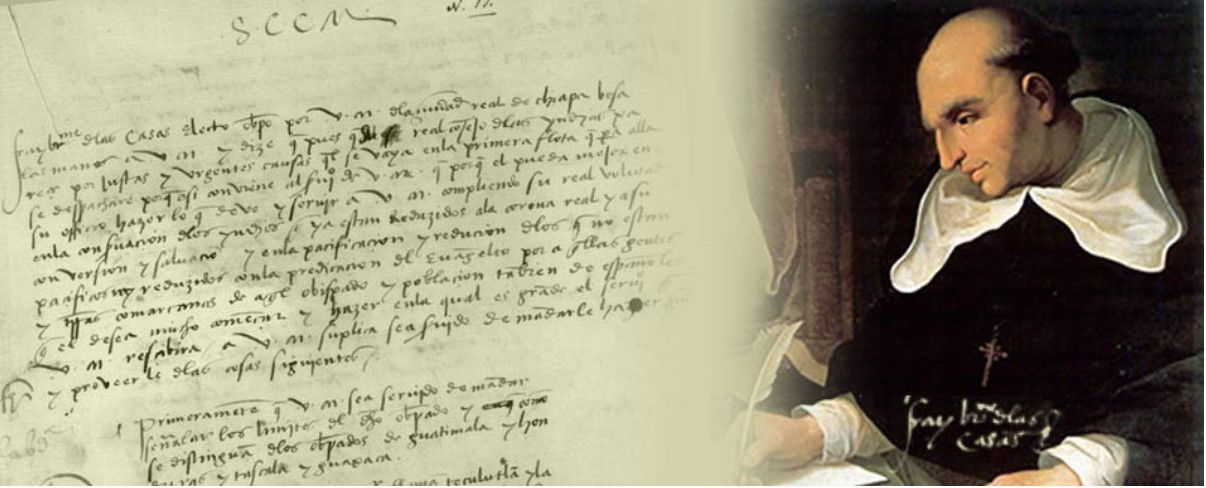 S.C.C.M.
fray br.me dlas Casas electo obpo por v. m. dla ciudad real de chiapa besa
las manos a v. m. y dize q pues real cosejo dlas yndias pa
reçe por justas y urgentes causas ql se vaya enla primera flota q pa alla
se despachare porq asi conviene al sui.o de v. m. q porq el pueda mejor en
su officio hazer lo q deve y servir a v. m. compliendo su real voluntad
enla dlos yndios q ya estan Reduzidos ala corona real y a su
conversion y saluacio y enla pacificacion y reducion dlos q no estan
pacificos ny reduzidos conla predicacion del Evagelio por aqllas gentes
y trras comarcanas de aql obispado y poblacion tabien de españoles
q el desea mucho començar y hazer enla qual es grade el servi.o
q v. m. rescibira a v. m. suplica sea suido de madarle hazer
y proveerle dlas cosas siguientes
Primeramete q v. m. sea servido de madar
señalar los limites del dho obpado y como
se distingua dlos obpados de guatimala y hon
duras y tascala y guaxaca.
teculutla y la
fray br.me dlas
Casas